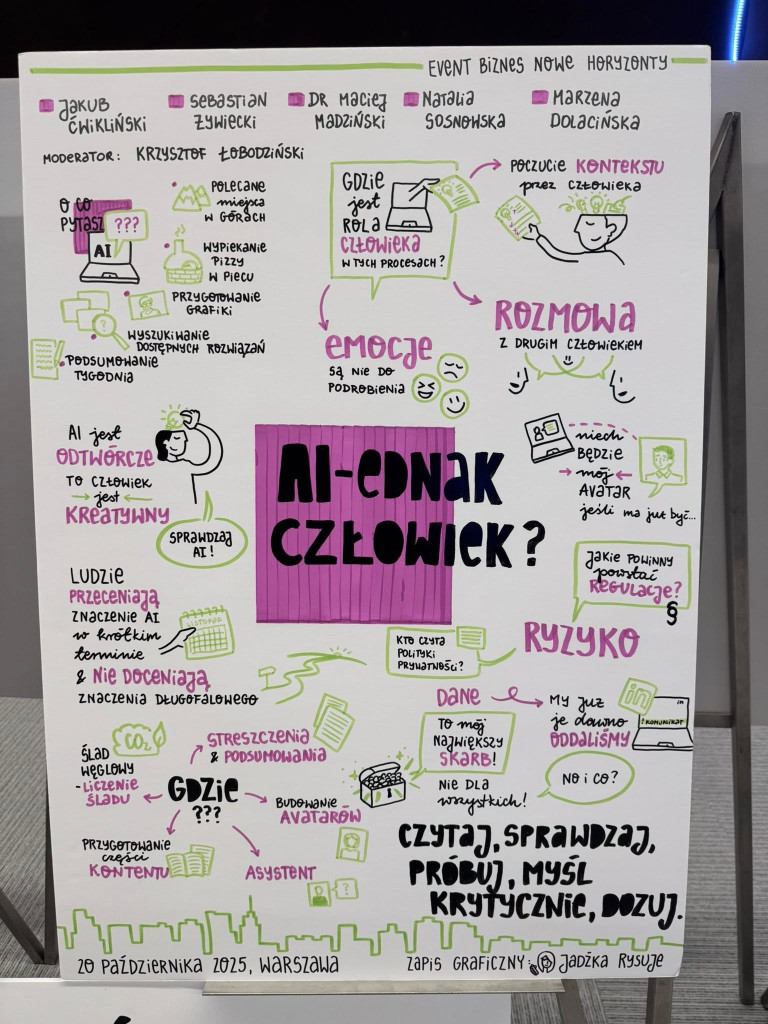 EVENT BIZNES NOWE HORYZONTY
JAKUB
ĆWIKLIŃSKI
SEBASTIAN
ŻYWIECKI
DR MACIEJ
MADZIŃSKI
NATALIA
SOSNOWSKA
MARZENA
DOLACIŃSKA
MODERATOR: KRZYSZTOF ŁOBODZIŃSKI
O CO
PYTASZ
???
AI
POLECANE
miejsca
W GÓRACH
WYPIEKANIE
PIZZY
W PIECU
PRZYGOTOWANIE
GRAFIKI
WYSZUKIWANIE
DOSTĘPNYCH ROZWIĄZAŃ
PODSUMOWANIE
TYGODNIA
GDZIE
jest
ROLA
CZŁOWIEKA
W TYCH PROCESACH?
POCZUCIE KONTEKSTU
przez CZŁOWIEKA
EMOCJE
SĄ NIE DO
PODROBIENIA
ROZMOWA
Z DRUGIM CZŁOWIEKIEM
AI jest
ODTWÓRCZE
TO CZŁOWIEK
jest
KREATYWNY
SPRAWDZAJ
AI!
AI-EDNAK
CZŁOWIEK?
niech
BĘDZIE
mój
AVATAR
jeśli ma już być...
LUDZIE
PRZECENIAJĄ
ZNACZENIE AI
w krótkim
terminie
& NIE DOCENIAJĄ
ZNACZENIA DŁUGOFALOWEGO
LISTOPAD
JAKIE POWINNY
powstać
REGULACJE?
§
RYZYKO
KTO CZYTA
POLITYKI
PRYWATNOŚCI?
DANE
MY JUŻ
je dawno
ODDALIŚMY
in
in
KOMUNIKAT
TO MÓJ
NAJWIĘKSZY
SKARB!
NIE DLA
wszystkich!
NO I CO?
GDZIE
???
STRESZCZENIA
& PODSUMOWANIA
ŚLAD
WĘGLOWY
-LICZENIE
ŚLADU
CO₂
BUDOWANIE
AVATARÓW
PRZYGOTOWANIE
części
KONTENTU
ASYSTENT
?
CZYTAJ, SPRAWDZAJ,
PRÓBUJ, MYŚL
KRYTYCZNIE, DOZUJ.
20 PAŹDZIERNIKA 2025, WARSZAWA
ZAPIS GRAFICZNY: JADŹKA RYSUJE